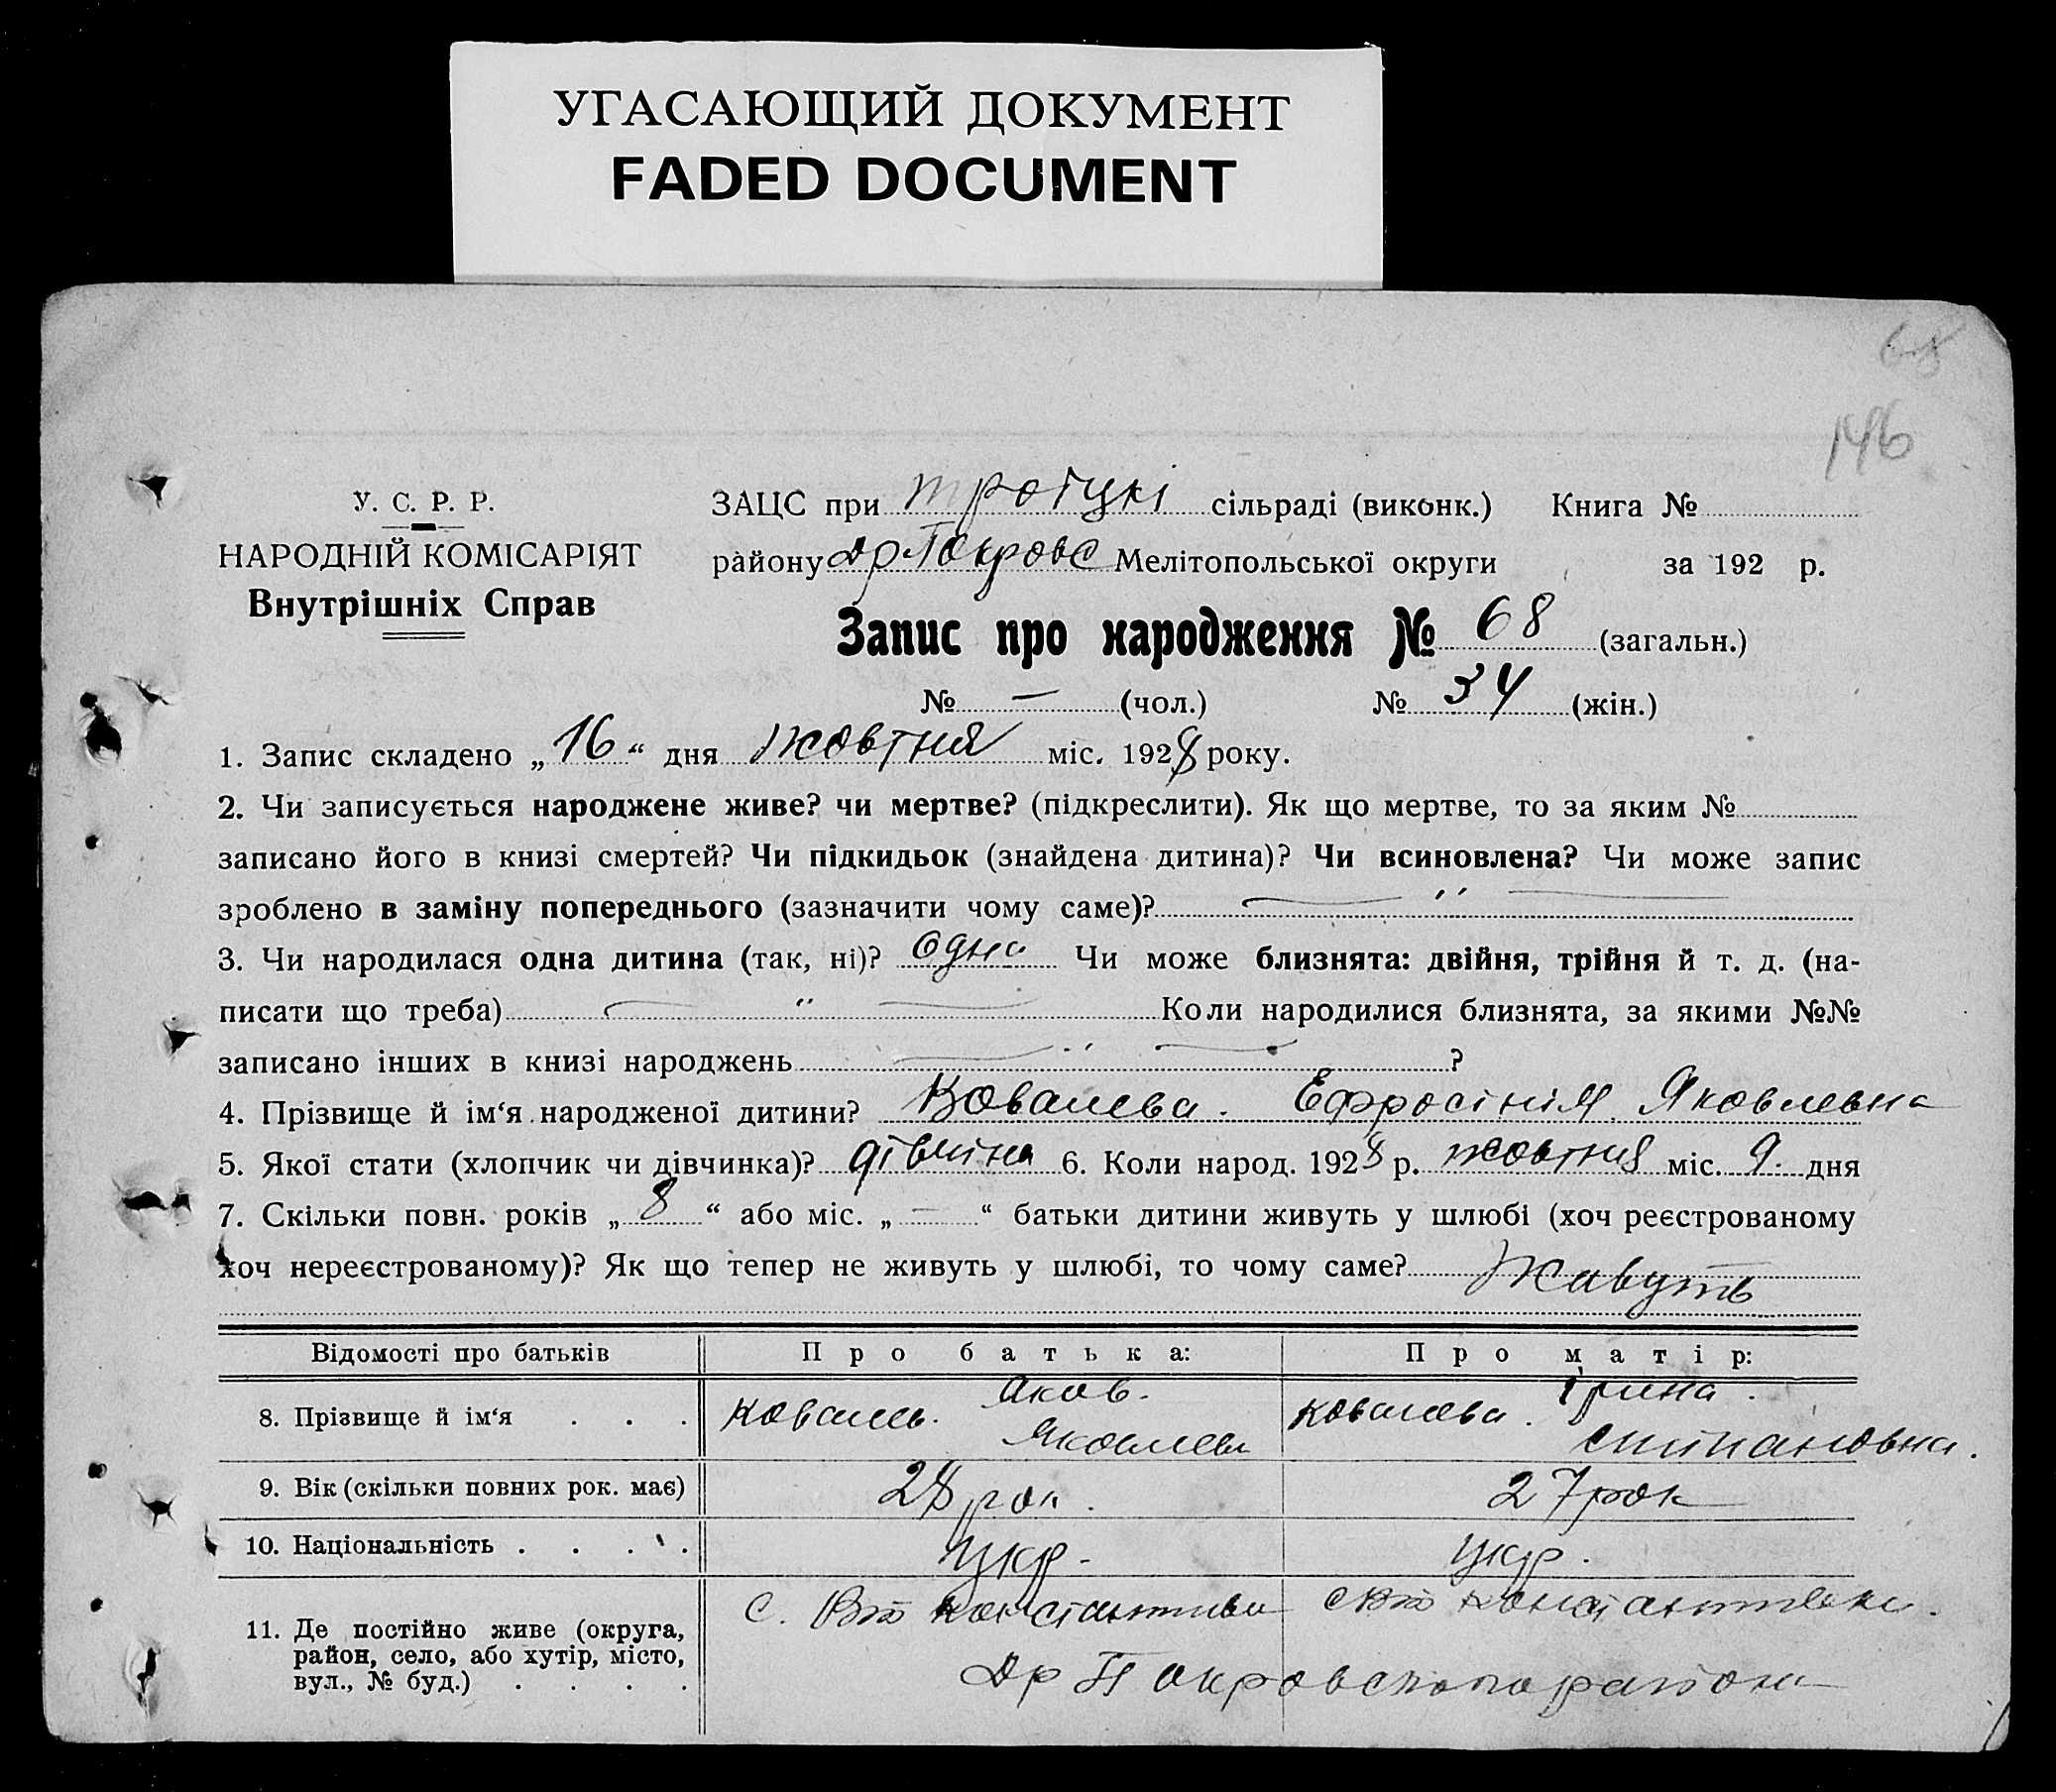 УГАСАЮЩИЙ ДОКУМЕНТ
FADED DOCUMENT
68
146
У. С. Р. Р.
НАРОДНІЙ КОМІСАРІЯТ
Внутрішніх Справ
ЗАЦС при Троцкі сільраді (виконк.) Книга №
району Др Покровс Мелітопольської округи за 192 р.
Запис про народження № 68 (загальн.)
№ — (чол.) № 34 (жін.)
1. Запис складено „16“ дня жовтня міс. 1928 року.
2. Чи записується народжене живе? чи мертве? (підкреслити). Як що мертве, то за яким №
записано його в книзі смертей? Чи підкидьок (знайдена дитина)? Чи всиновлена? Чи може запис
зроблено в заміну попереднього (зазначити чому саме)? — " —
3. Чи народилася одна дитина (так, ні)? одна Чи може близнята: двійня, трійня й т. д. (на-
писати що треба) — " — Коли народилися близнята, за якими №№
записано інших в книзі народжень — " — ?
4. Прізвище й ім‘я народженої дитини? Ковалева. Ефросінія Яковлевна
5. Якої стати (хлопчик чи дівчинка)? 6. Коли народ. 1928 р. жовтня міс. 9. дня
7. Скільки повн. років „8“ або міс. „—“ батьки дитини живуть у шлюбі (хоч реєстрованому
хоч нереєстрованому)? Як що тепер не живуть у шлюбі, то чому саме? Живуть
Відомості про батьків Про батька: Про матір:
8. Прізвище й ім‘я . . . Коваль. Яков. Ковалева. Ірина.
Яковлев Степановна.
9. Вік (скільки повних рок. має) 28 рок. 27 рок
10. Національність . . . . укр. укр.
11. Де постійно живе (округа,
район, село, або хутір, місто,
вул., № буд.) . . . .
с.
Др Покровского района